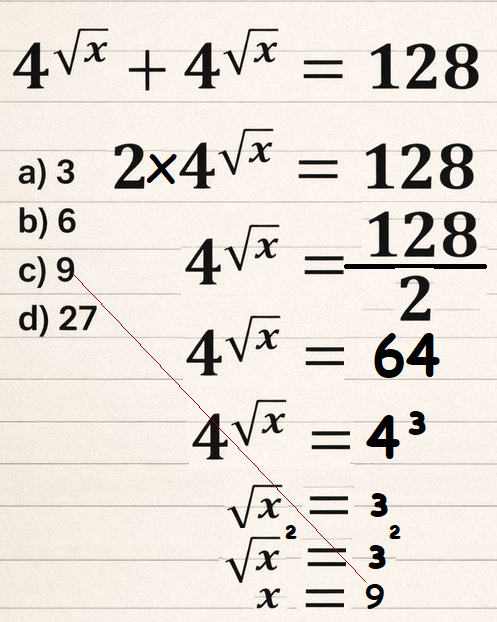 4^√x + 4^√x = 128
a) 3
b) 6
c) 9
d) 27
2×4^√x = 128
4^√x = 128/2
4^√x = 64
4^√x = 4³
√x = 3
√x² = 3²
x = 9